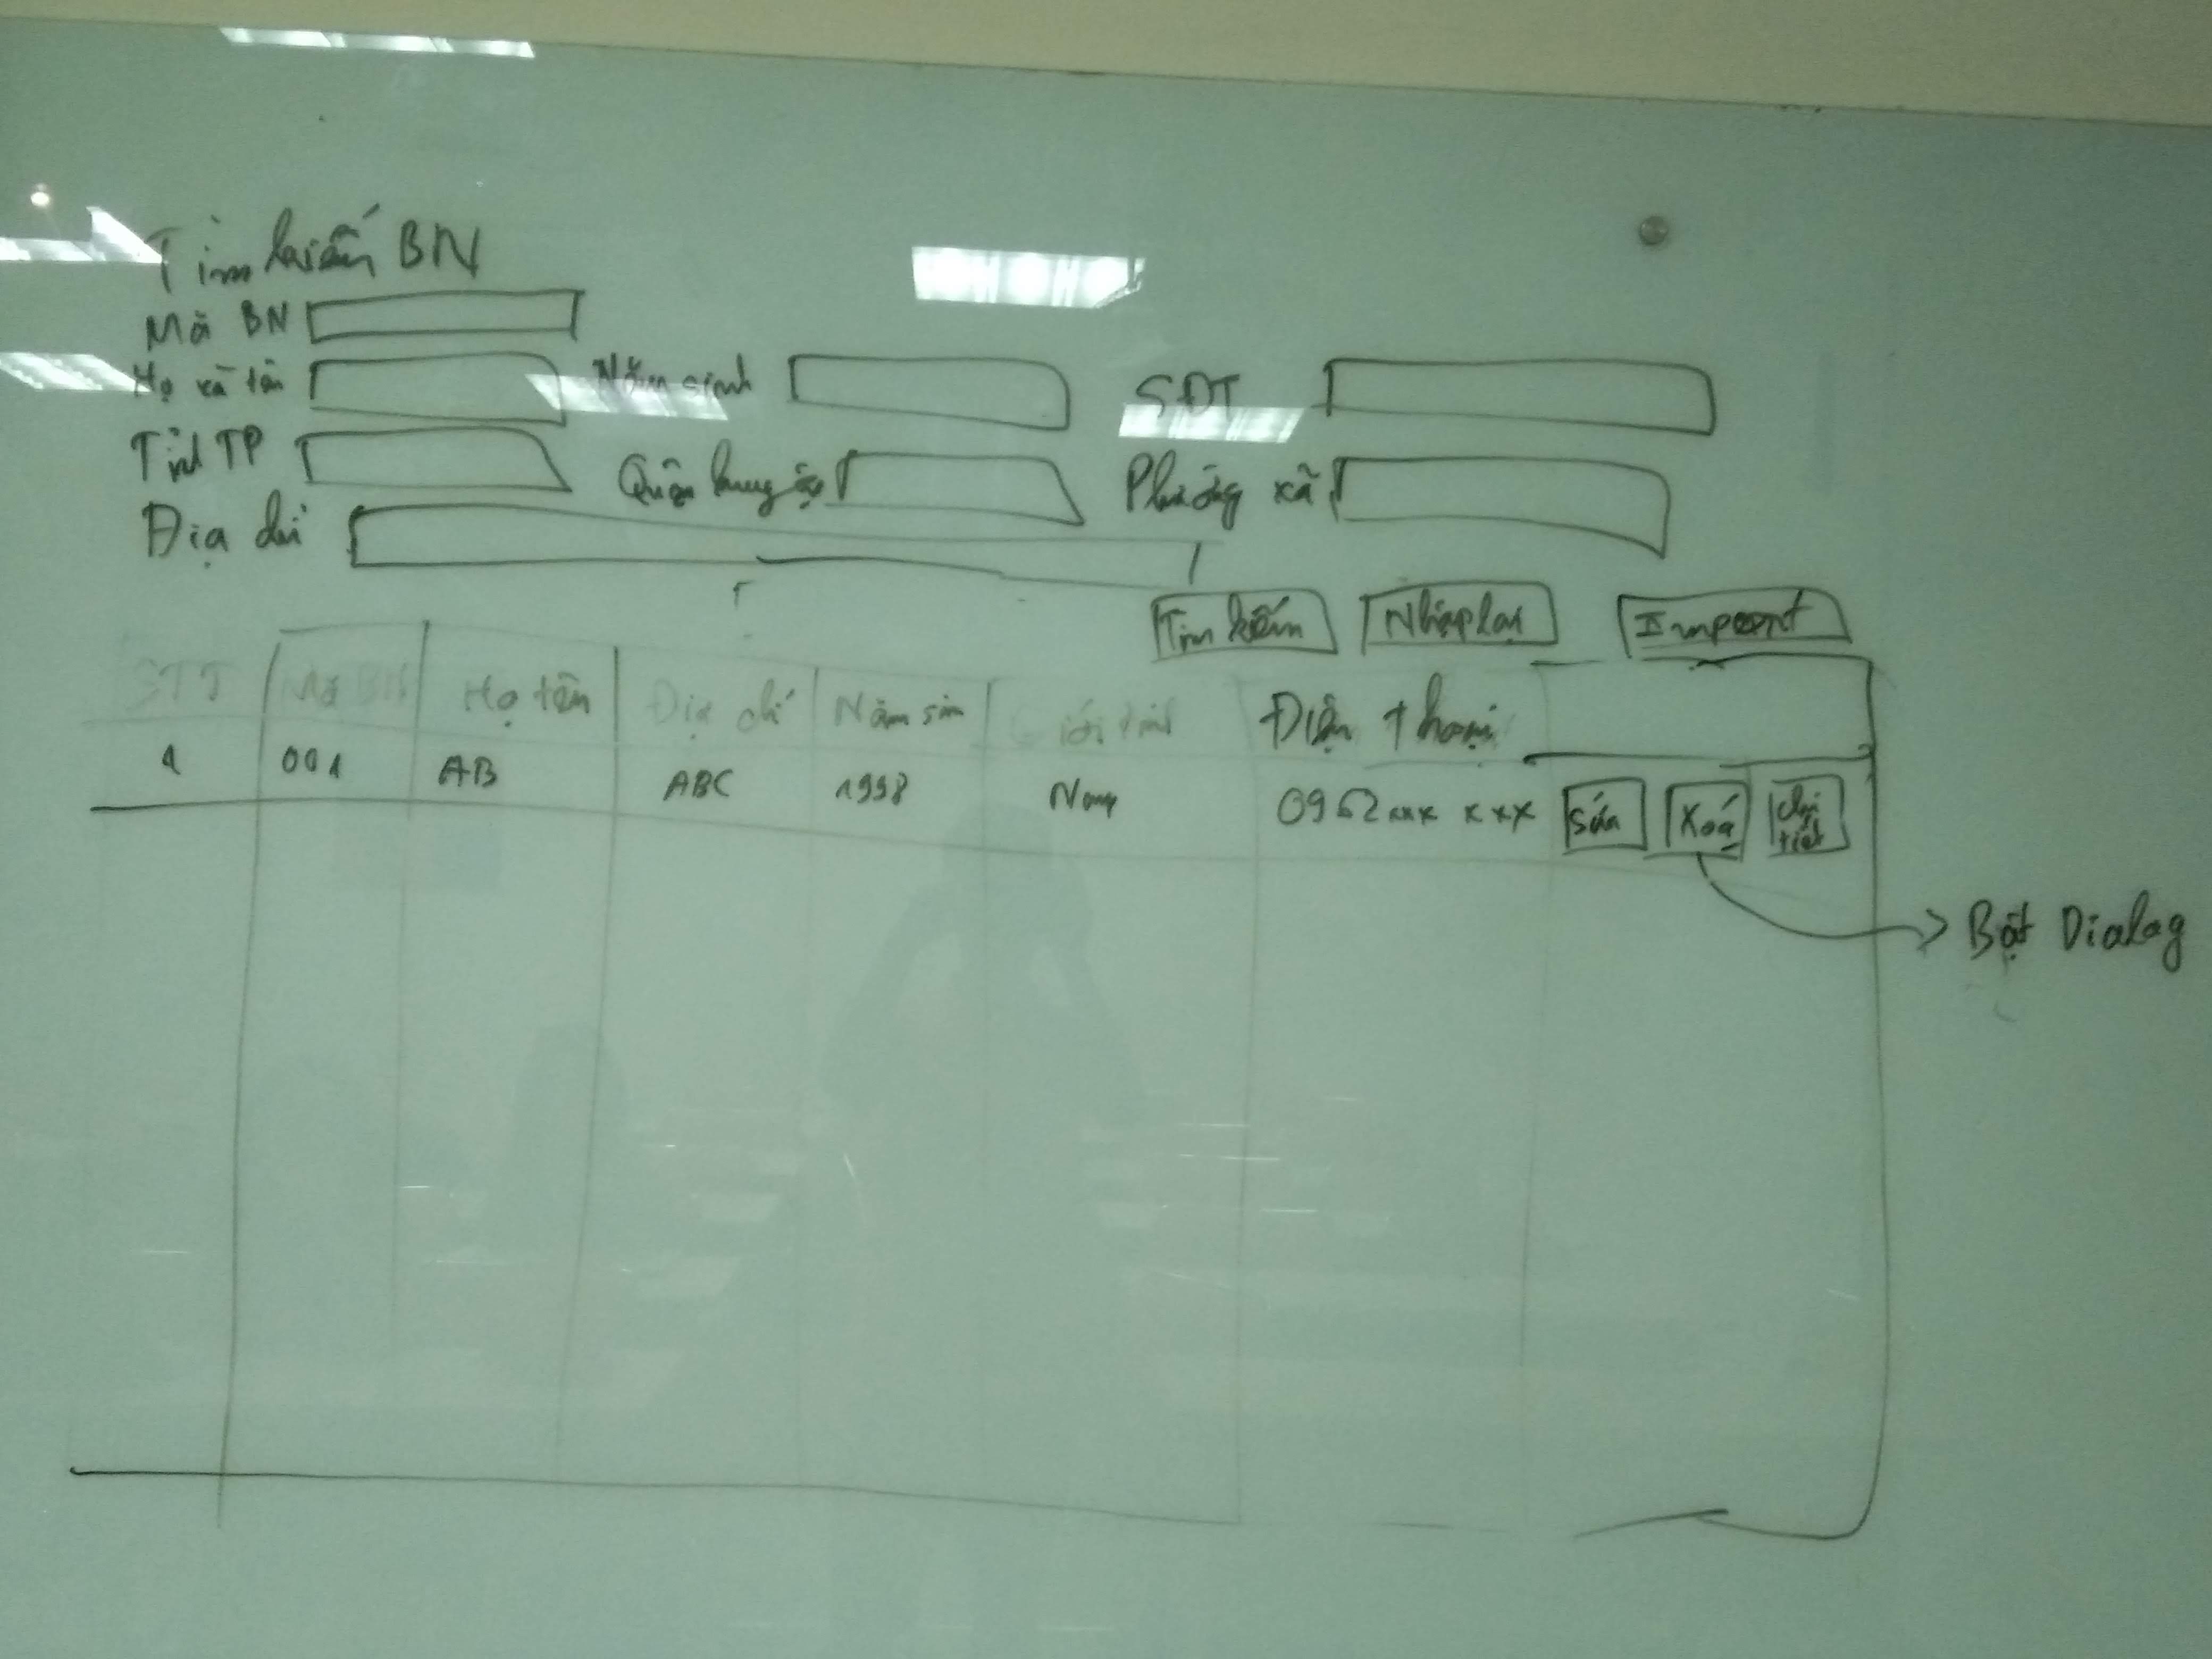 Tìm kiếm BN
Mã BN
Họ và tên Năm sinh SĐT
Tỉnh TP Quận huyện Phường xã
Địa chỉ
Tìm kiếm Nhập lại Import
STT Mã BN Họ tên Địa chỉ Năm sin Giới tính Điện thoại
1 001 AB ABC 1998 Nam 0962xxx xxx Sửa Xoá chi tiết
Bật Dialog